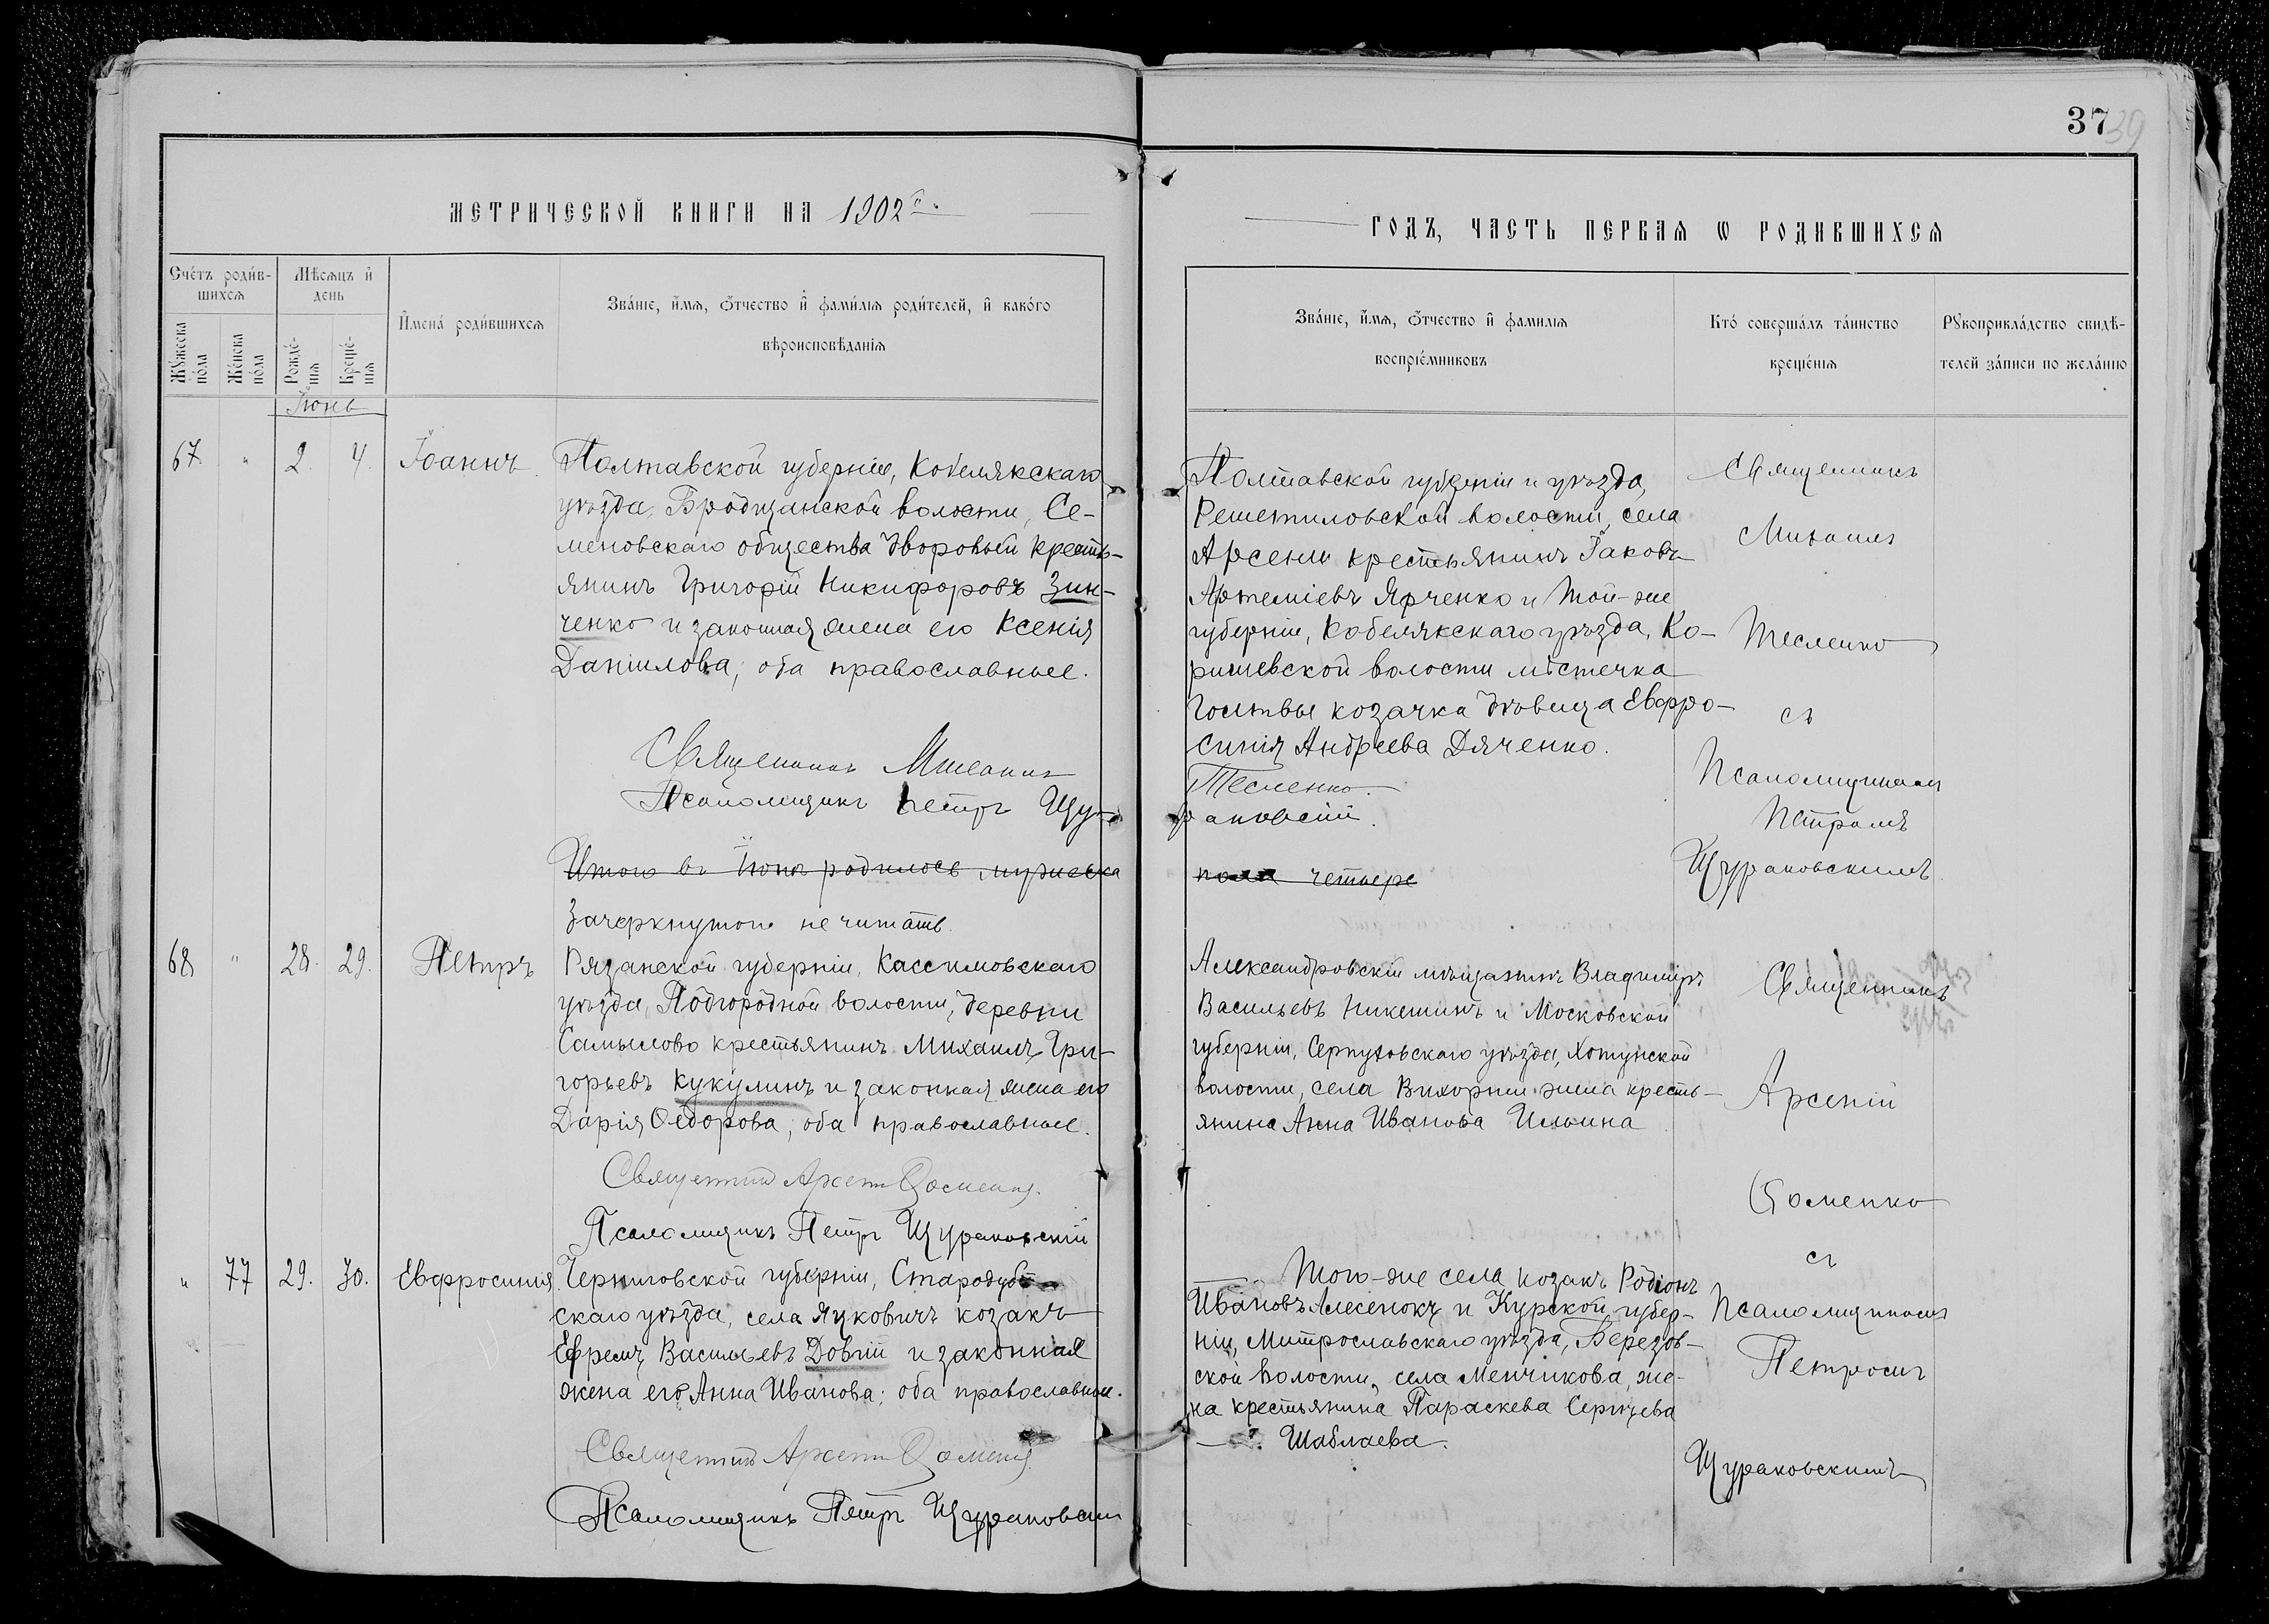 37 39
МЕТРИЧЕСКОЙ КНИГИ НА 1902 г.
ГОДЪ, ЧАСТЬ ПЕРВАЯ Ѡ РОДИВШИХСЯ
Сче́тъ роди́в-
шихся
Мѣсяцъ и҆
день
Му́жеска по́ла
Же́нска по́ла
Рожде́-
нія
Креще́-
нія
И҆мена́ роди́вшихся
Зва́ніе, и҆́мя, ѻ҆́тчество и҆ фами́лія роди́телей, и҆ како́го
вѣроисповѣ́данія
Зва́ніе, и҆́мя, ѻ҆́тчество и҆ фамилія
воспріе́мниковъ
Кто́ соверша́лъ та́инство
креще́нія
Рꙋкоприкла́дство свидѣ́-
телей за́писи по жела́нію
Іюнь
67. " 2. 4. Іоаннъ.
Полтавской губерніи, Кобелякскаго
уѣзда, Бродщанской волости, Се-
меновскаго общества дворовый кресть-
янинъ Григорій Никифоровъ Зин-
ченко и законная жена его Ксенія
Даніилова; оба православные.
Священникъ Михаилъ
Тесленко.
Псаломщикъ Петръ Щу-
раковскій.
Полтавской губерніи и уѣзда,
Решетиловской волости, села
Арсени крестьянинъ Іаковъ
Артеміевъ Ярченко и той-же
губерніи, Кобелякскаго уѣзда, Ко-
ришевской волости мѣстечка
Голтвы козачка дѣвица Евфро-
синія Андреева Дяченко.
Священникъ
Михаилъ
Тесленко
съ
Псаломщикомъ
Петромъ
Щураковскимъ
Итого въ Іюнѣ родилось мужеска
пола четыре
Зачеркнутого не читать.
68 " 28. 29. Петръ
Рязанской губерніи, Кассимовскаго
уѣзда, Подгородной волости, деревни
Самылово крестьянинъ Михаилъ Гри-
горьевъ Кукулинъ и законная жена его
Дарія Ѳедорова; оба православные.
Священникъ Арсеній Ѳоменко.
Псаломщикъ Петръ Щураковскій
Александровскій мѣщанинъ Владиміръ
Васильевъ Никешинъ и Московской
губерніи, Серпуховскаго уѣзда, Хотунской
волости, села Вихорни жена кресть-
янина Анна Иванова Ильина
Священникъ
Арсеній
Ѳоменко
съ
Псаломщикомъ
Петромъ
Щураковскимъ
" 77 29. 30. Евфросинія
Черниговской губерніи, Стародуб-
скаго уѣзда, села Яцковичъ козакъ
Ефремъ Васильевъ Довгій и законная
жена его Анна Иванова; оба православные.
Священникъ Арсеній Ѳоменко
Псаломщикъ Петръ Щураковскій
Того-же села козакъ Родіонъ
Ивановъ Алесенокъ и Курской губер-
ніи, Митрославскаго уѣзда, Березов-
ской волости, села Менчикова, же-
на крестьянина Параскева Сергѣева
Шаблаева.